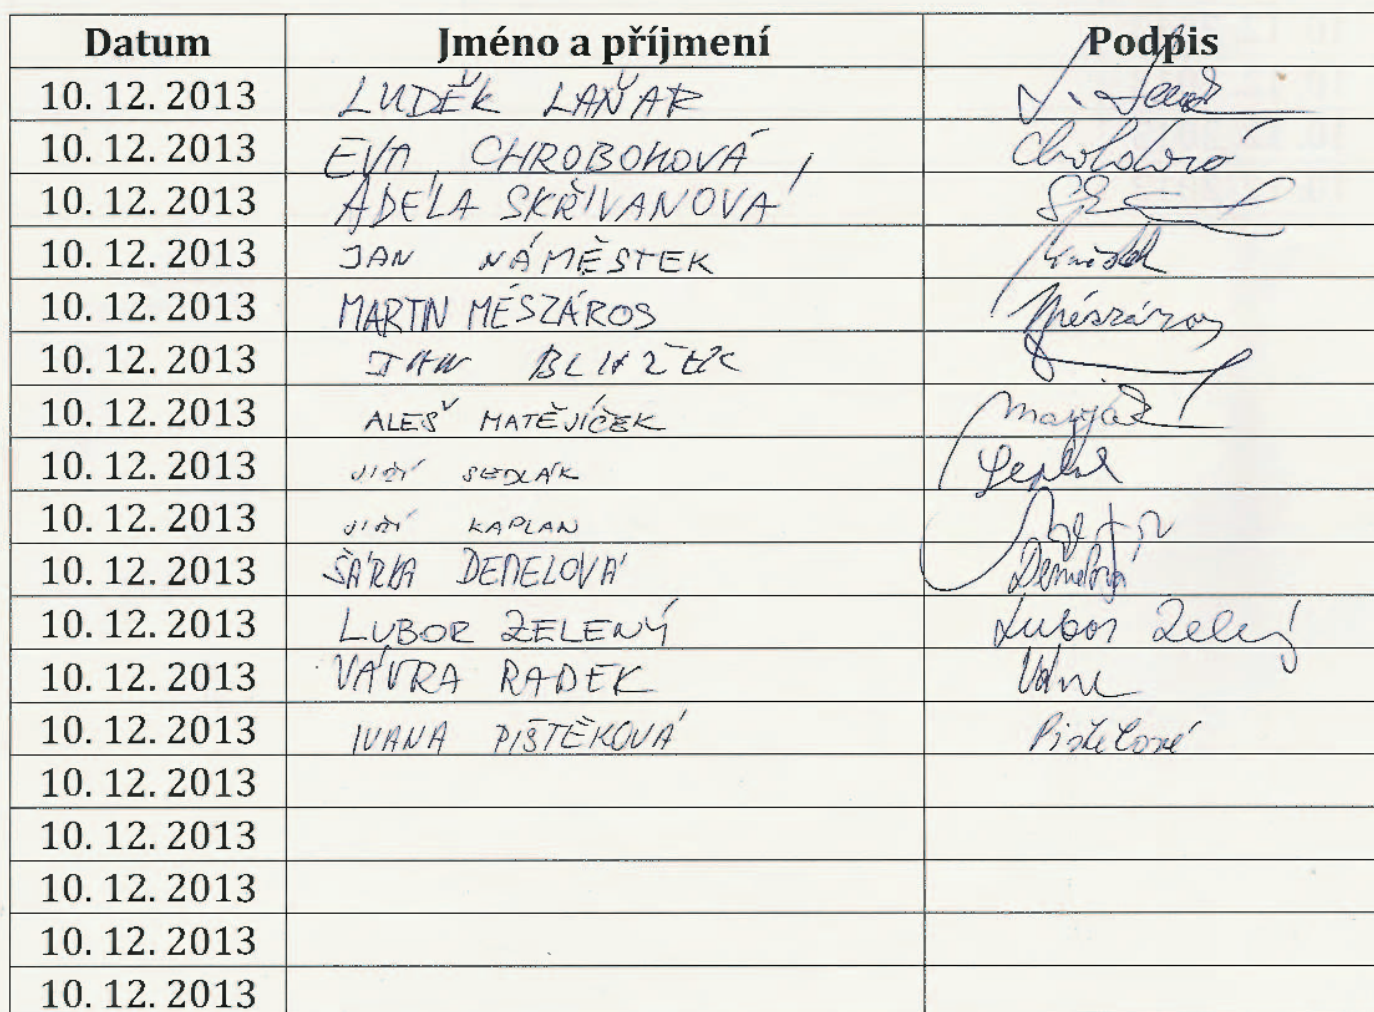 Datum Jméno a příjmení Podpis
10. 12. 2013 LUDĚK LAŇAR
10. 12. 2013 EVA CHROBOKOVÁ
10. 12. 2013 ADÉLA SKŘIVANOVÁ
10. 12. 2013 JAN NÁMĚSTEK
10. 12. 2013 MARTIN MÉSZÁROS Mészáros
10. 12. 2013 JAN
10. 12. 2013 ALEŠ MATĚJÍČEK
10. 12. 2013 JIŘÍ SEDLÁK
10. 12. 2013 JIŘÍ KAPLAN
10. 12. 2013 ŠÁRKA DEMELOVÁ Demelová
10. 12. 2013 LUBOR ZELENÝ Lubor Zelený
10. 12. 2013 VÁVRA RADEK
10. 12. 2013 IVANA PIŠTĚKOVÁ Pištěková
10. 12. 2013
10. 12. 2013
10. 12. 2013
10. 12. 2013
10. 12. 2013